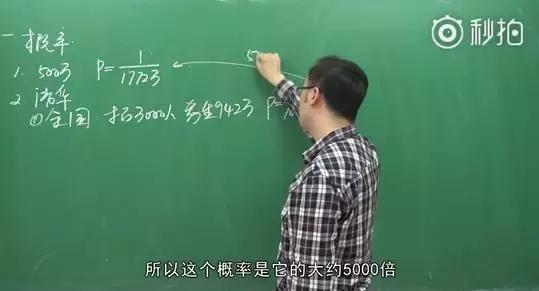 秒拍
一 概率
1. 500万 P=1/17723
2. 清华
①全国 招3000人 考生942万 P=
5
所以这个概率是它的大约5000倍